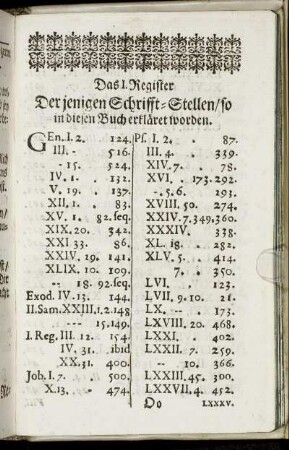 Das I. Register
Der jenigen Schrifft-Stellen/ so
in diesen Buch erkläret worden.
GEn. I. 2. 124.
III. - 516.
- 15. 524.
IV. 1. . 132.
V. 19. . 137.
XII. 1. . 83.
XV. 1. 82. seq.
XIX. 20. 342.
XXI 33. 86.
XXIV. 19. 141.
XLIX. 10. 109.
-- 18. 92. seq.
Exod. IV. 13. 144.
II. Sam. XXIII. 1. 2. 148
--- 15. 149.
I. Reg. III. 12. 154
IV. 31. ibid
XX. 31. 400.
Job. I. 7. . 500.
X. 13. - 474.
Ps. I. 2. . 87.
III. 4. . 339.
XIV. 7. . 78.
XVI. . 173. 292.
-. 5. 6. 193.
XVIII. 50. 274.
XXIV. 7. 349. 360.
XXXIV. 338.
XL. i8. . 282.
XLV. 5. . 414.
7. . 350.
LVI. . . 123.
LVII. 9. 10. 21.
LX. -- . 173.
LXVIII. 20. 468.
LXXI. . 402.
LXXII. 7. 259.
-- 10. 366.
LXXIII. 45. 300.
LXXVII. 4. 452.
Do LXXXV.